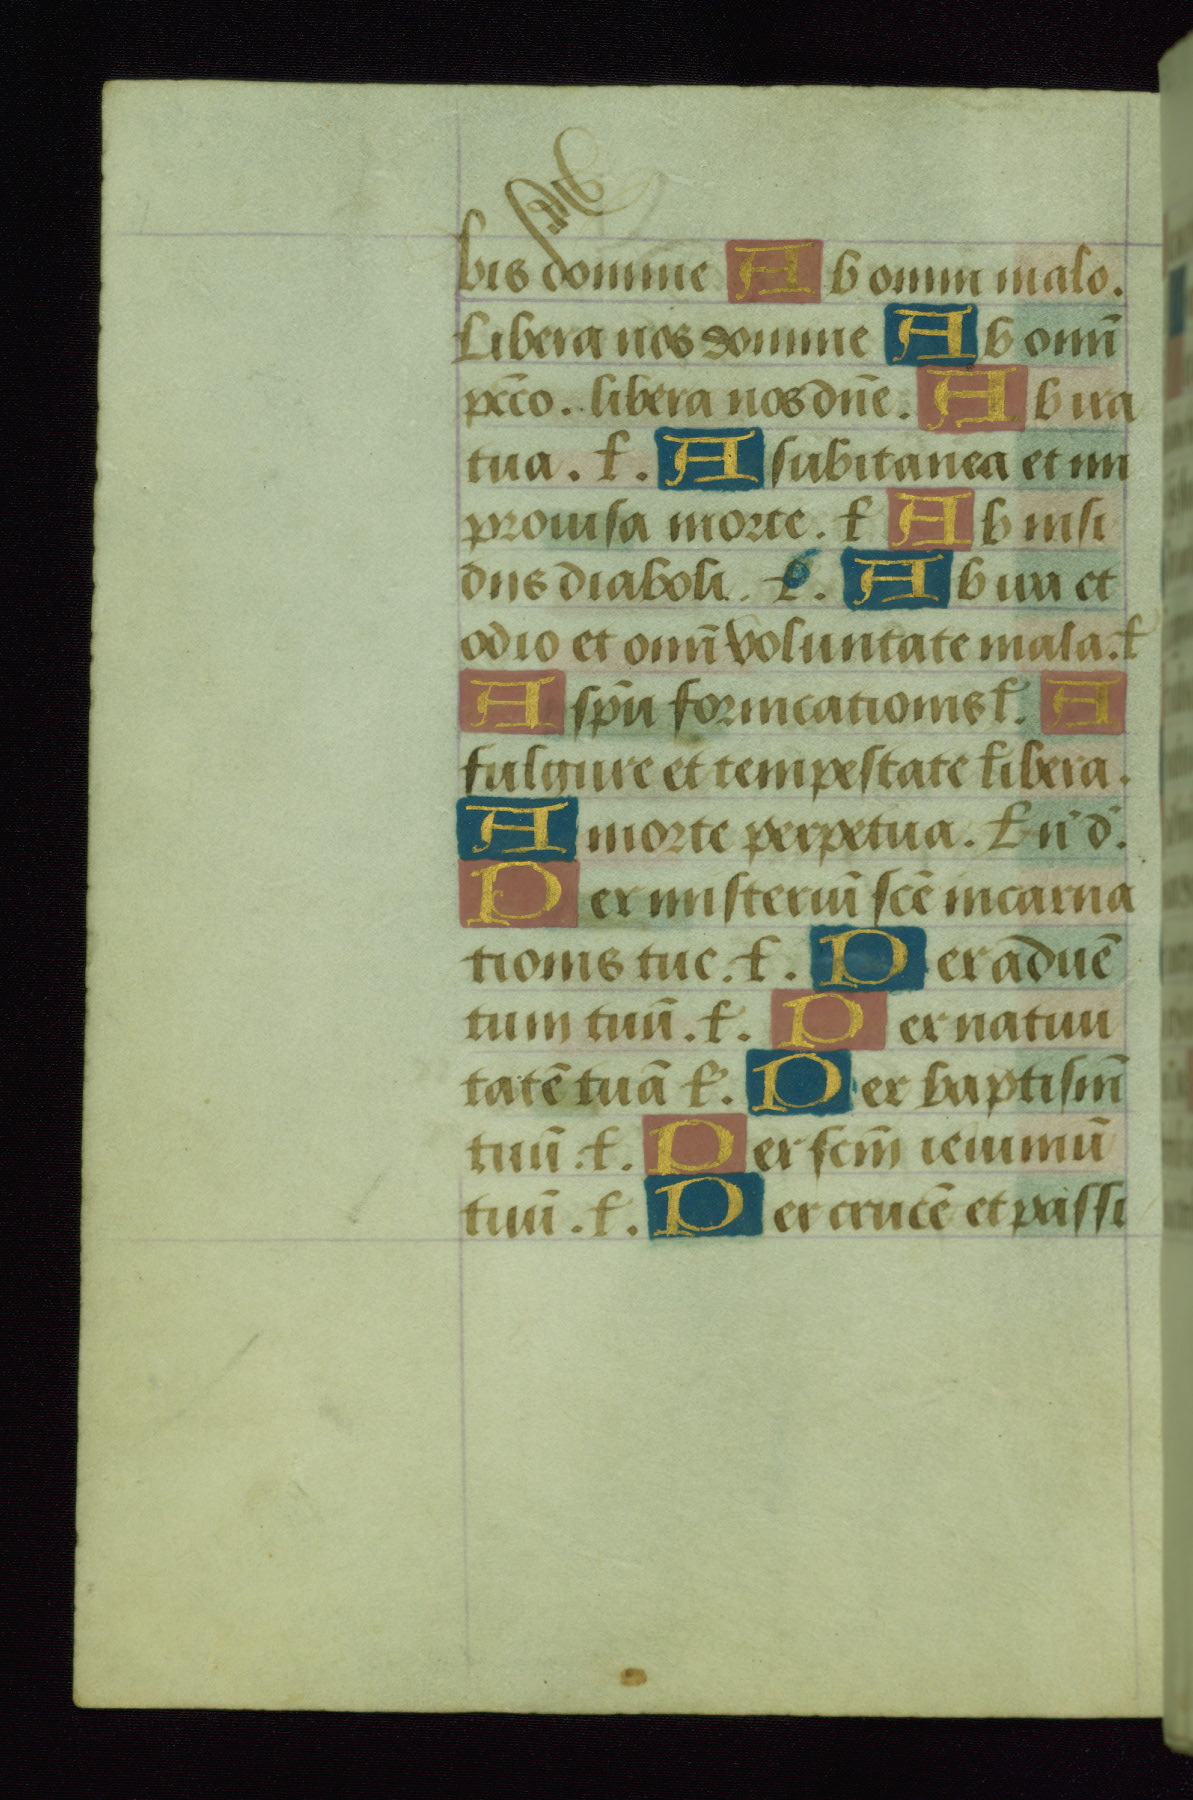 bis domine Ab omni malo.
Libera nos domine Ab omī
pctō. libera nos dñe. Ab ira
tua. ł. A subitanea et im
prouisa morte. ł Ab insi
diis diaboli. ł. Ab ira et
odio et omī voluntate mala. ł
A spū fornicationis ł. A
fulgure et tempestate libera.
A morte perpetua. ł n̄ d̄.
Per misteriū scē incarna
tionis tue. ł. Per aduē
tum tuū. ł. Per natiui
tatē tuā ł. Per baptismū
tuū. ł. Per scm̄ ieiuniū
tuū. ł. Per crucē et passi